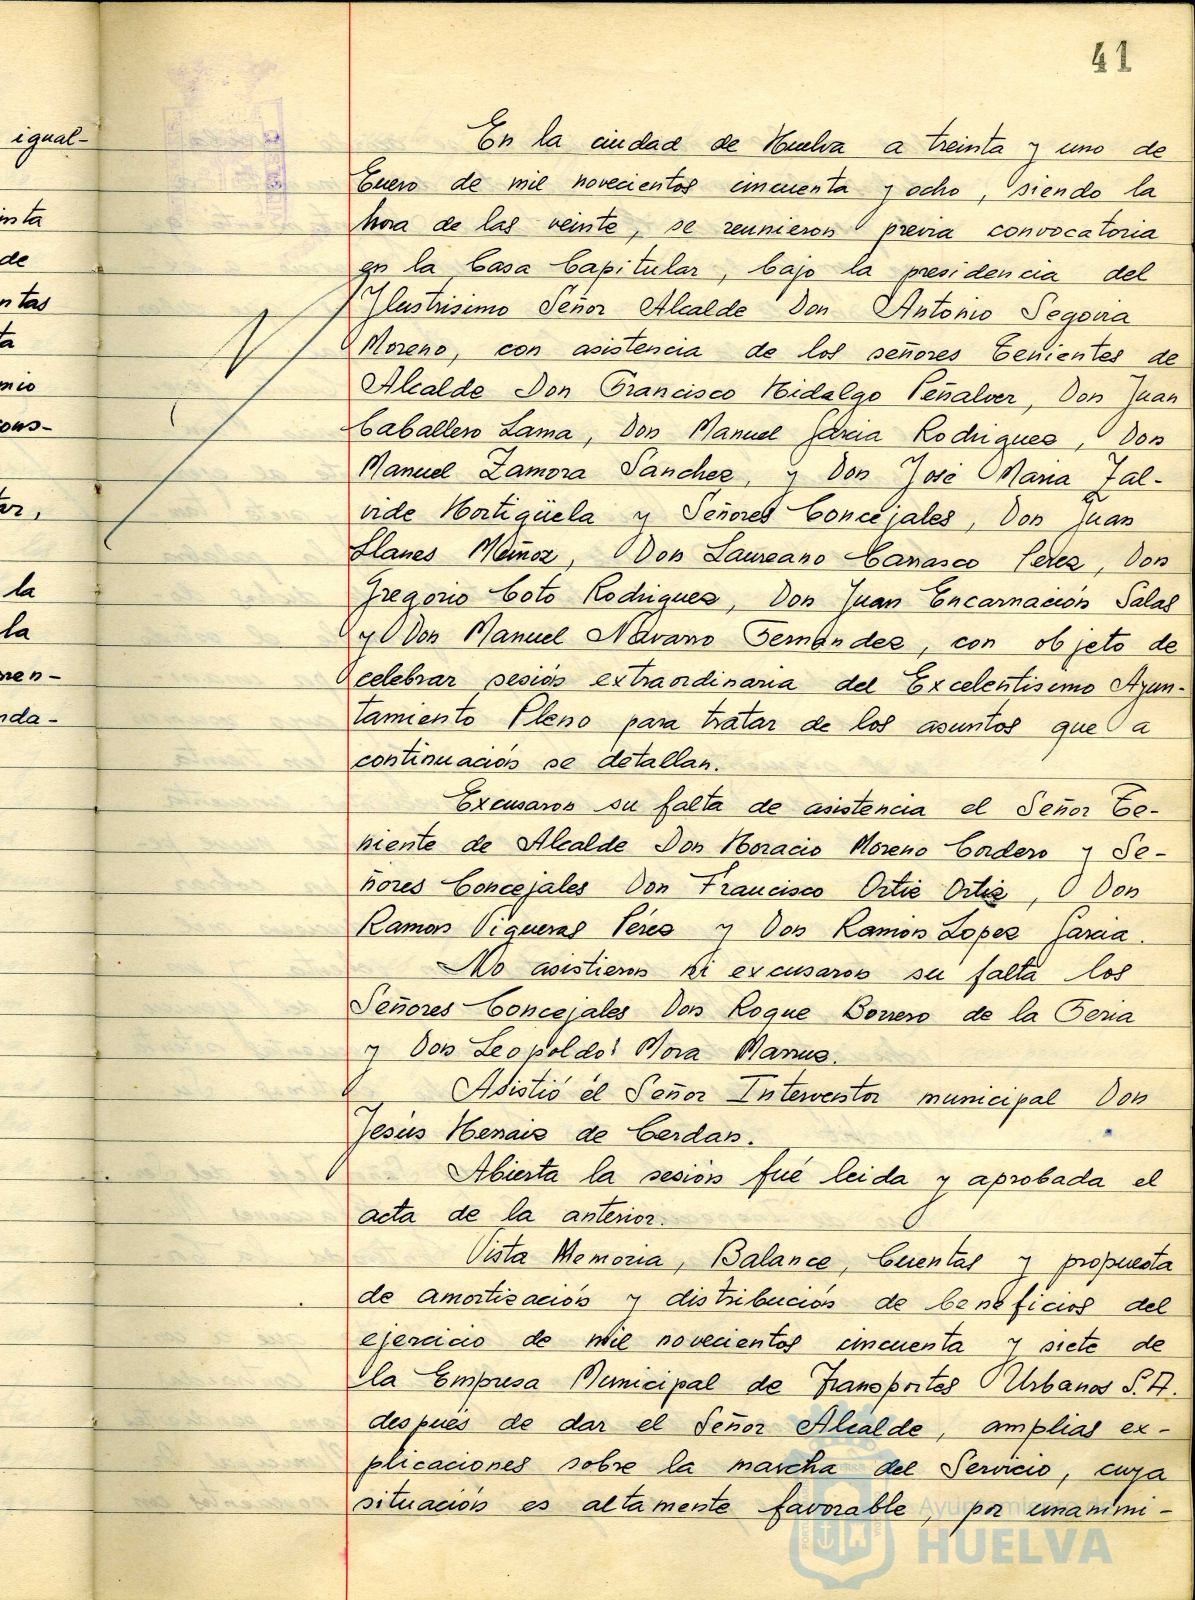 41
igual-
de
ntas
ta
mio
cons-
la
la
men-
nda-
En la ciudad de Huelva a treinta y uno de
Enero de mil novecientos cincuenta y ocho, siendo la
hora de las veinte, se reunieron previa convocatoria
en la Casa Capitular, bajo la presidencia del
Ilustrisimo Señor Alcalde Don Antonio Segovia
Moreno, con asistencia de los señores Tenientes de
Alcalde Don Francisco Hidalgo Peñalver, Don Juan
Caballero Lama, Don Manuel Garcia Rodriguez, Don
Manuel Zamora Sanchez, y Don José Maria Zal-
vide Hortigüela y Señores Concejales, Don Juan
Llanes Muñoz, Don Laureano Carrasco Perez, Don
Gregorio Coto Rodriguez, Don Juan Encarnación Salas
y Don Manuel Navarro Fernandez, con objeto de
celebrar sesión extraordinaria del Excelentisimo Ayun-
tamiento Pleno para tratar de los asuntos que a
continuación se detallan.
Excusaron su falta de asistencia el Señor Te-
niente de Alcalde Don Horacio Moreno Cordero y Se-
ñores Concejales Don Francisco Ortiz Ortiz, Don
Ramon Vigueras Pérez y Don Ramón Lopez Garcia.
No asistieron ni excusaron su falta los
Señores Concejales Don Roque Borrero de la Feria
y Don Leopoldo Mora
Asistió el Señor Interventor municipal Don
Jesús Henaiz de Cerdan.
Abierta la sesión fué leida y aprobada el
acta de la anterior.
Vista Memoria, Balance, Cuentas y propuesta
de amortización y distribución de beneficios del
ejercicio de mil novecientos cincuenta y siete de
la Empresa Municipal de Transportes Urbanos S.A.
después de dar el Señor Alcalde, amplias ex-
plicaciones sobre la marcha del Servicio, cuya
situación es altamente favorable, por unanimi-
Ayuntamiento de
HUELVA